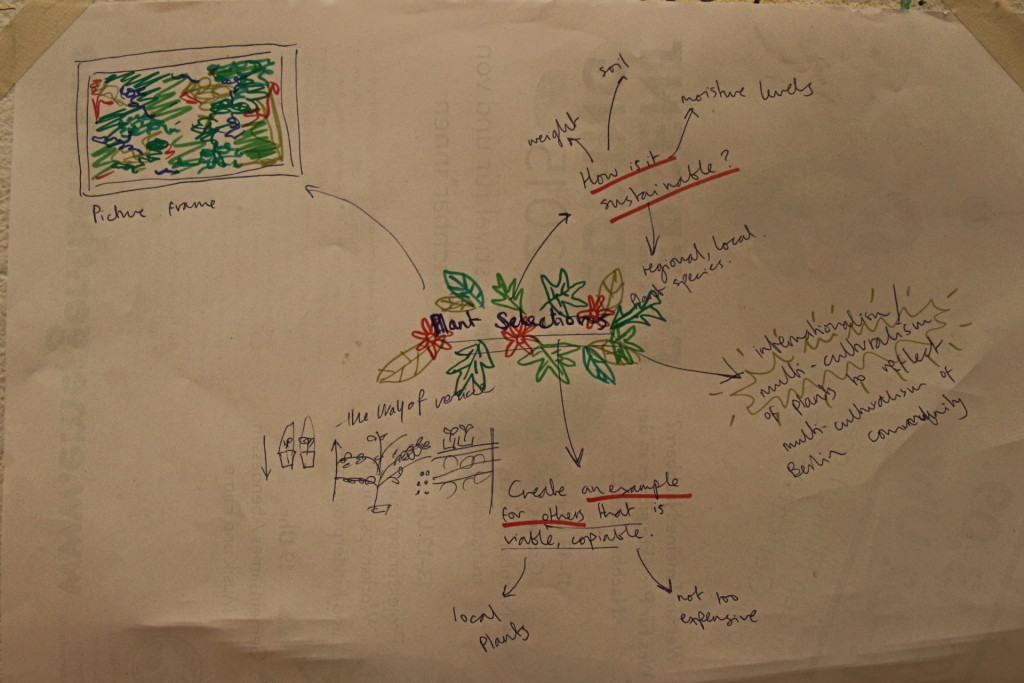 Picture frame
soil
weight
moisture levels
How is it
sustainable?
regional, local
plant species.
Plant Selections
internationalism/
multi-culturalism
of plants to reflect
multi-culturalism of
Berlin community
The way of vertical
Create an example
for others that is
viable, copiable.
local
plants
not too
expensive